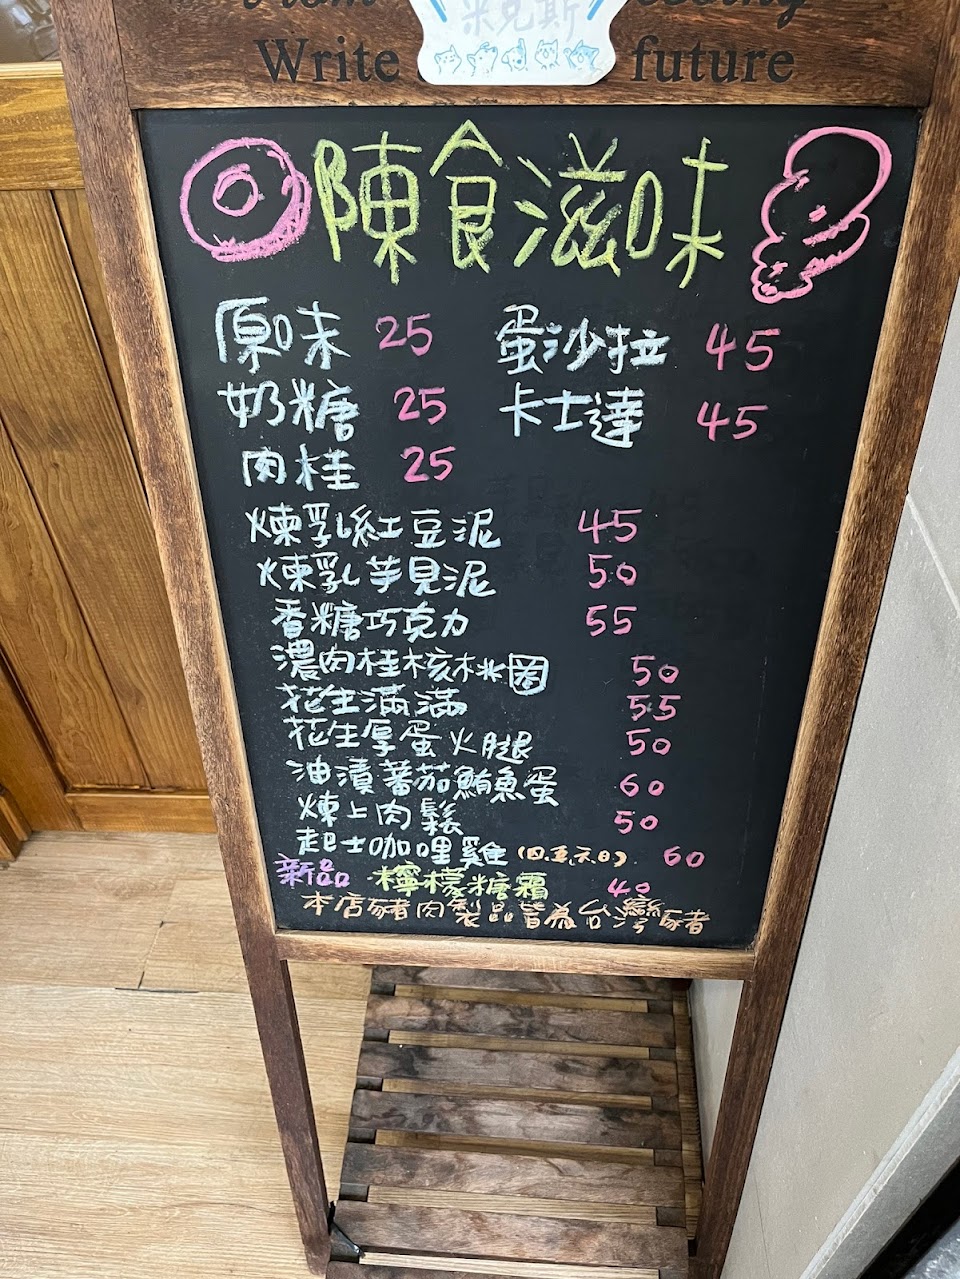 米克斯
Write future
陳食滋味
原味 25 蛋沙拉 45
奶糖 25 卡士達 45
肉桂 25
煉乳紅豆泥 45
煉乳芋見泥 50
香糖巧克力 55
濃肉桂核桃圈 50
花生滿滿 55
花生厚蛋火腿 50
油漬蕃茄鮪魚蛋 60
煉上肉鬆 50
起士咖哩雞(四.五.六.日) 60
新品 檸檬糖霜 40
本店豬肉製品皆為台灣豬